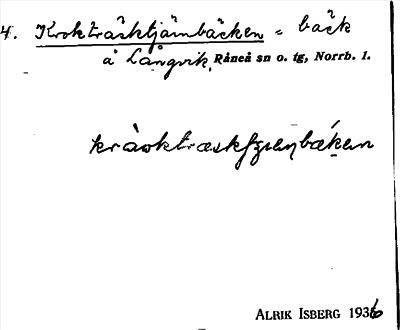 4. Krokträsktjärnbäcken = bäck
å Långvik, Råneå sn o. tg, Norrb. l.
ALRIK ISBERG 1936